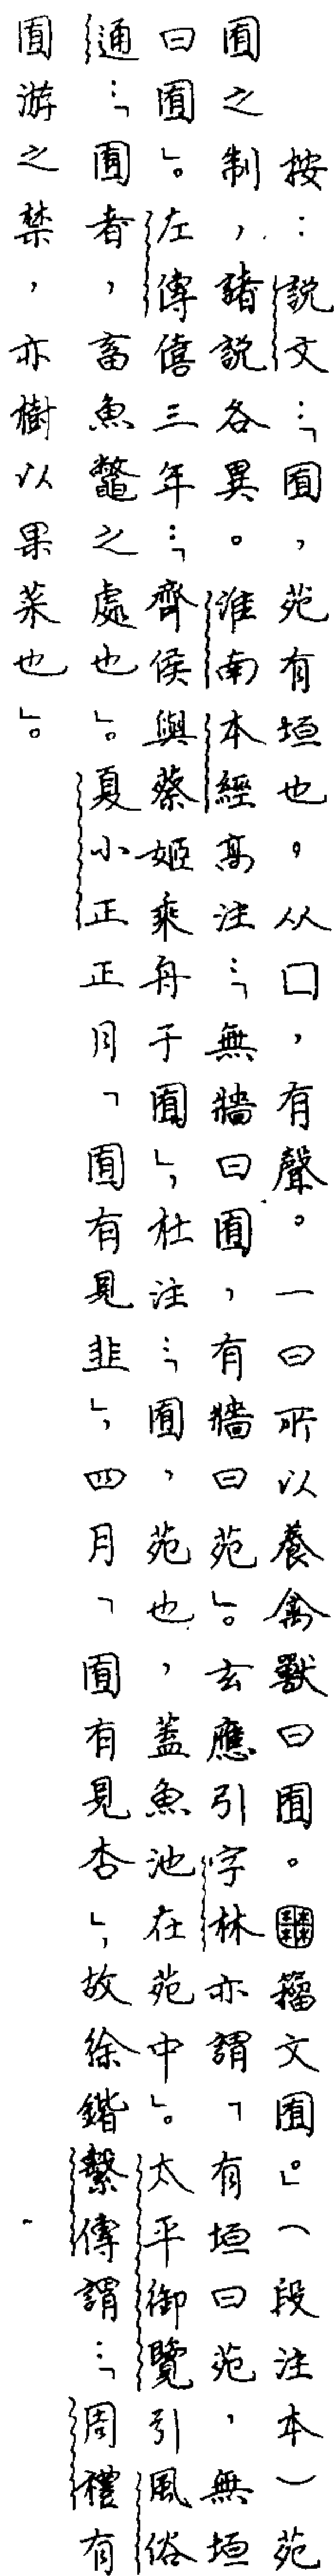 按：説文：「囿，苑有垣也，从囗，有聲。一曰所以養禽獸曰囿。𡈹籀文囿。」（段注本）苑
囿之制，諸説各異。淮南本經高注：「無牆曰囿，有牆曰苑」。玄應引字林亦謂「有垣曰苑，無垣
曰囿」。左傳僖三年：「齊侯與蔡姬乘舟于囿」，杜注：「囿，苑也，蓋魚池在苑中」。太平御覽引風俗
通：「囿者，畜魚鼈之處也」。夏小正正月「囿有見韭」，四月「囿有見杏」，故徐鍇繫傳謂：「周禮有
囿游之禁，亦樹以果菜也」。